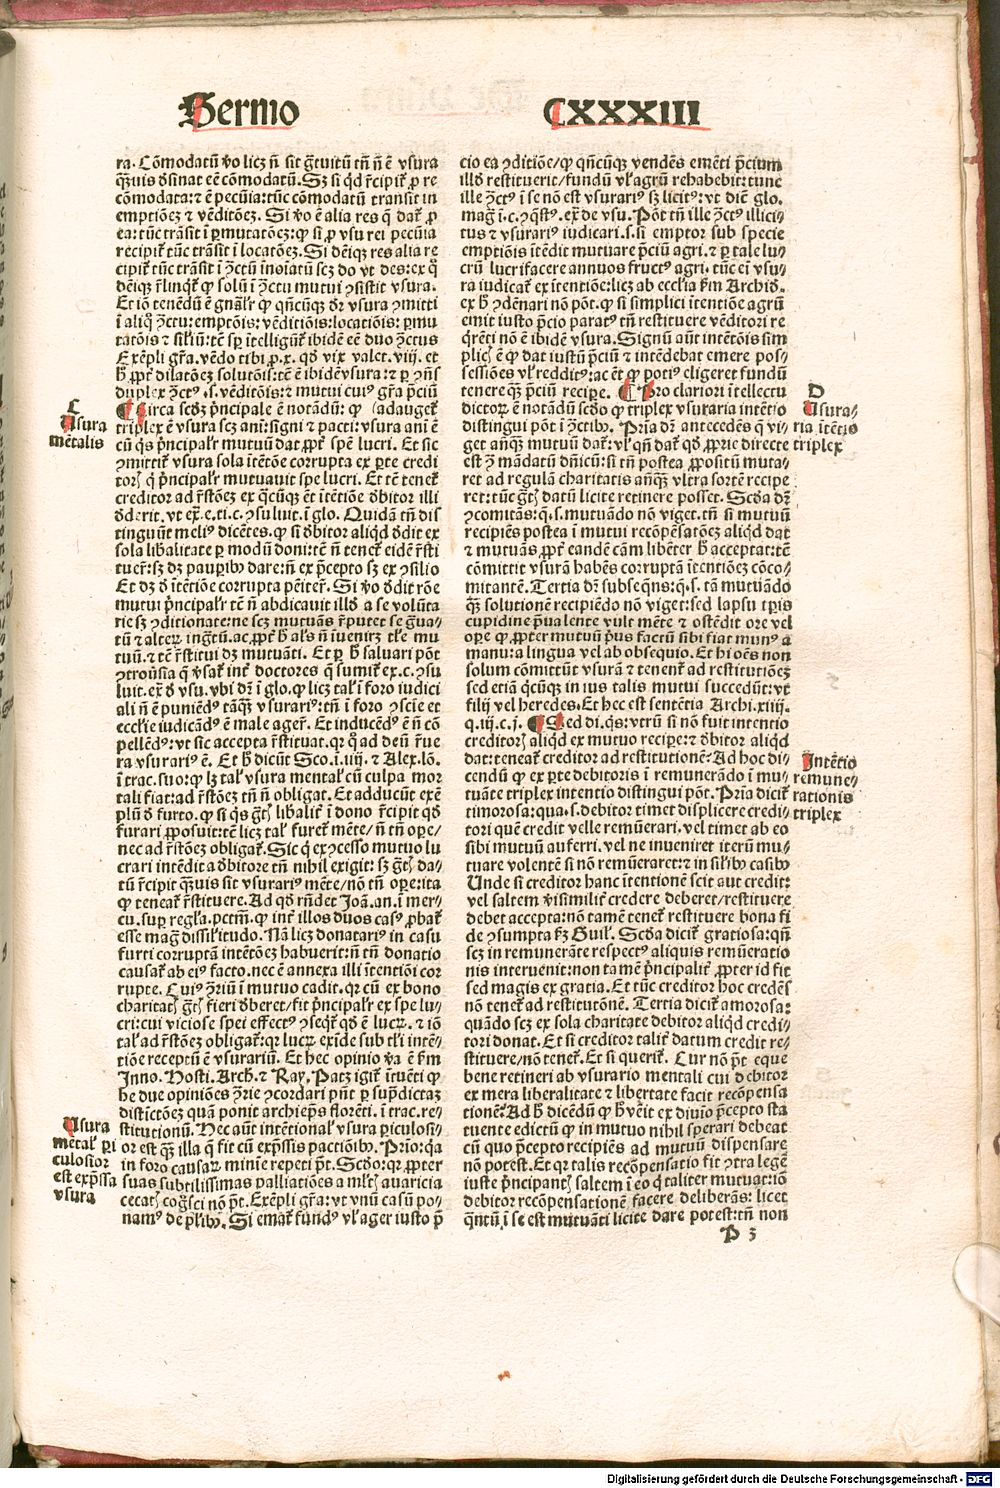 Sermo
CXXXIII
ra. Cōmodatū v̄o licꝫ n̄ sit g̈tuitū tn̄ n̄ ē vsura
q̄ꝫuis dsinat eē cōmodatū. Sꝫ si qd r̄cipit̄ ꝓ re
cōmodata: ⁊ ē pecūia: tūc cōmodatū transit in
emptiōeꝫ ⁊ vēditōeꝫ. Si v̄o ē alia res q̄ dat̄ ꝓ
ea: tūc trāsit ī ꝑmutatōeꝫ: ꝙ si ꝓ vsu rei pecūia
recipit̄ tūc trāsit ī locatōeꝫ. Si deīqꝫ res alia re
cipit̄ tūc trāsit ī ꝯctū īnoīatū scꝫ do vt des: ex q̊
deīqꝫ r̄linqt̄ ꝙ solū ī ꝯctu mutui ꝯsistit vsura.
Et iō tenēdū ē gn̄alr̄ ꝙ qn̄cūqꝫ dr̄ vsura ꝯmitti
ī aliq̊ ꝯctu: emptōis: vēditiōis: locatiōis: ꝑmu
tatōis ⁊ siliū: tē sꝑ ītelligūt̄ ibidē eē duo ꝯctus
Exēpli gr̄a. vēdo tibi ꝓ .x. qd̄ vix valet .viij. et
h̄ ꝓpt̄ dilatōeꝫ solutōis: tē ē ibidē vsura: ⁊ ꝑ ꝯn̄s
duplex ꝯct⁹ .s. vēditōis: ⁊ mutui cui⁹ gr̄a p̄ciū
¶ Circa scd̄ꝫ p̄ncipale ē notādū: ꝙ adauget̄
triplex ē vsura scꝫ ani: signi ⁊ pacti: vsura ani ē
cū q̄s p̄ncipalr̄ mutuū dat ꝓpt̄ spē lucri. Et sic
ꝯmittit̄ vsura sola ītētōe corrupta ex ꝑte credi
toris q̄ p̄ncipalr̄ mutuauit spe lucri. Et tē tenet̄
creditor ad r̄stōeꝫ ex q̄cūqꝫ ēt ītētiōe dbitor illi
dderit. vt ex̄. e. ti. c. ꝯsuluit. ī glo. Quidā tn̄ dis
tinguūt meli⁹ dicētes. ꝙ si dbitor aliqd ddit ex
sola lib̄alitate ꝑ modū doni: tē n̄ tenet̄ eidē r̄sti
tuer̄: sꝫ dꝫ pauꝑibꝰ dare: n̄ ex p̄cepto sꝫ ex ꝯsilio
Et dꝫ d ītētiōe corrupta pēiter̄. Si v̄o ddit rōe
mutui p̄ncipalr̄ tē n̄ abdicauit illd̄ a se volūta
rie sꝫ ꝯditionate: ne scꝫ mutuās r̄putet se g̈ua
tū ⁊ alterꝫ ing̈tū. ac ꝓpt̄ h̄ als n̄ īuenirꝫ tl̄e mu
tuū. ⁊ tē r̄stitui dꝫ mutuāti. Et ꝑ h̄ saluari pōt
ꝯtrou͛sia q̄ v͛sat̄ int̄ doctores q̄ sumit̄ ex .c. ꝯsu
luit. ex̄. d vsu. vbi dr̄ ī glo. ꝙ licꝫ tal̄ ī foro iudici
ali n̄ ē puniēd⁹ tāq̄ꝫ vsurari⁹: tn̄ ī foro ꝯscie et
ecclīe iudicād⁹ ē male ager̄. Et inducēd⁹ ē n̄ cō
pellēd⁹: vt sic accepta r̄stituat. qr q̊ ad deū r̄ue
ra vsurari⁹ ē. Et h̄ dicūt Sco. ī .iiij. ⁊ Alex. lō.
ī trac. suo: ꝙ lꝫ tal̄ vsura mental̄ cū culpa mor
tali fiat: ad r̄stōeꝫ tn̄ n̄ obligat. Et adducūt exē
plū d furto. ꝙ si q̄s g̈tꝭ lib̄alit̄ ī dono r̄cipit qd̄
furari ꝓposuit: tē licꝫ tal̄ furet̄ mēte/ n̄ tn̄ oꝑe/
nec ad r̄stōeꝫ obligat̄. Sic q̄ ex ꝯcesso mutuo lu
crari intēdit a dbitore tn̄ nihil exigit: sꝫ g̈tꝭ da⸗
tū r̄cipit q̄ꝫuis sit vsurari⁹ mēte/ nō tn̄ oꝑe: ita
ꝙ teneat̄ r̄stituere. Ad qd̄ rn̄det Joā. an. ī mer⸗
cu. suꝑ regl̄a. pctm̄. ꝙ int̄ illos duos cas⁹ ꝓbat̄
esse mag̈ dissil̄itudo. Nā licꝫ donatari⁹ in casu
furti corruptā intētōeꝫ habuerit: n̄ tn̄ donatio
causat̄ ab ei⁹ facto. nec ē annexa illi ītentiōi cor
rupte. Cui⁹ ꝯriū ī mutuo cadit. qr cū ex bono
charitatꝭ g̈tꝭ fieri dberet/ fit p̄ncipalr̄ ex spe lu⸗
cri: cui viciose spei effect⁹ ꝯseqt̄ qd̄ ē lucꝝ. ⁊ iō
tal̄ ad r̄stōeꝫ obligat̄: qr lucꝝ exīde sub tl̄i intē⸗
tiōe receptū ē vsurariū. Et hec opinio v̄a ē fm̄
Inno. Hosti. Arch. ⁊ Ray. Patꝫ igit̄ ītuēti ꝙ
he due opiniōes ꝯrie ꝯcordari pn̄t ꝑ sup̄dictaꝫ
distictōeꝫ quā ponit archiep̄s florēti. ī trac. re⸗
stitutionū. Hec aūt intētional̄ vsura ꝑiculosi⸗
or est q̄ꝫ illa q̄ fit cū exp̄ssis pactiōibꝰ. Prīo: q̄a
in foro causaꝝ minīe repeti pōt. Scd̄o: qr ꝓpter
suas subtilissimas palliatiōes a ml̄tꝭ auaricia
cecatꝭ cog̈sci nō pōt. Exēpli gr̄a: vt vnū casū po⸗
nam⁹ de pl̄ibꝰ. Si emat̄ fund⁹ vl̄ ager iusto p̄
C
Usura
mētalis
Usura
mētal̄ ꝑi
culosior
est exp̄ssa
vsura
cio ea ꝯditiōe/ ꝙ qn̄cūqꝫ vendēs emēti p̄cium
illd̄ restituerit/ fundū vl̄ agrū rehabebit: tunc
ille ꝯct⁹ ī se nō est vsurari⁹ sꝫ licit⁹: vt diē. glo.
mag̈ ī .c. ꝯq̄st⁹. ex̄. de vsu. Pōt tn̄ ille ꝯct⁹ illici⸗
tus ⁊ vsurari⁹ iudicari .s. si emptor sub specie
emptiōis ītēdit mutuare p̄ciū agri. ⁊ ꝑ tale lu⸗
crū lucrifacere annuos fruct⁹ agri. tūc eī vsu⸗
ra iudicat̄ ex ītentiōe: licꝫ ab ecclīa fm̄ Archid.
ex h̄ ꝯdēnari nō pōt. ꝙ si simplici ītentiōe agrū
emit iusto p̄cio parat⁹ tn̄ restituere vēditori re
q̄rēti nō ē ibidē vsura. Signū aūt intētōis sim
plicꝭ ē ꝙ dat iustū p̄ciū ⁊ intēdebat emere pos⸗
sessiōes vl̄ reddit⁹: ac ēt ꝙ poti⁹ eligeret fundū
tenere q̄ꝫ p̄ciū recipe. ¶ Pro clariori ītellectu
dictoꝝ ē notādū scd̄o ꝙ triplex vsuraria intētio
distingui pōt ī ꝯctibꝰ. Prīa dr̄ antecedēs q̄ vi⸗
get añq̄ꝫ mutuū dat̄: vl̄ qn̄ dat̄ qd̄ ꝓprie directe
est ꝯ mādatū dn̄icū: si tn̄ postea ꝓpositū muta⸗
ret ad regulā charitatis añq̄ꝫ vltra sortē recipe
ret: tūc g̈tꝭ datū licite retinere posset. Scd̄a dr̄
ꝯcomitās: q̄ .s. mutuādo nō viget. tn̄ si mutuū
recipiēs postea ī mutui recōpēsatōeꝫ aliqd dat
⁊ mutuās ꝓpt̄ eandē cām libēter h̄ acceptat: tē
cōmittit vsurā habēs corruptā ītentiōeꝫ cōco⸗
mitantē. Tertia dr̄ subseqn̄s: q̄ .s. tā mutuādo
q̄ꝫ solutionē recipiēdo nō viget: sed lapsu tꝑis
cupidine p̄ualente vult mēte ⁊ ostēdit ore vel
oꝑe ꝙ ꝓpter mutuū p̄us factū sibi fiat mun⁹ a
manu: a lingua vel ab obsequio. Et hi oēs non
solum cōmittūt vsurā ⁊ tenent̄ ad restitutiōeꝫ
sed etiā q̄cūqꝫ in ius talis mutui succedūt: vt
filij vel heredes. Et hec est sentētia Archi. xiiij.
q. iij. c. j. ¶ Sed di. q̄s: vtrū si nō fuit intentio
creditorꝭ aliqd ex mutuo recipe: ⁊ dbitor aliqd
dat: teneat̄ creditor ad restitutionē: Ad hoc di⸗
cendū ꝙ ex ꝑte debitoris ī remunerādo ī mu⸗
tuāte triplex intentio distingui pōt. Prīa dicit̄
timorosa: qua .s. debitor timet displicere credi⸗
tori quē credit velle remūerari. vel timet ab eo
sibi mutuū auferri. vel ne inueniret iterū mu⸗
tuare volentē si nō remūeraret: ⁊ in sil̄ibꝰ casibꝰ
Unde si creditor hanc ītentionē scit aut credit:
vel saltem v͛isimilit̄ credere deberet/ restituere
debet accepta: nō tamē tenet̄ restituere bona fi
de ꝯsumpta fꝫ Guil̄. Scd̄a dicit̄ gratiosa: qn̄
scꝫ in remunerāte respect⁹ aliquis remūeratio
nis interuenit: non tamē p̄ncipalit̄ ꝓpter id fit
sed magis ex gratia. Et tūc creditor hoc credēs
nō tenet̄ ad restitutōnē. Tertia dicit̄ amorosa:
quādo scꝫ ex sola charitate debitor aliqd credi⸗
tori donat. Et si creditor talit̄ datum credit re⸗
stituere/ nō tenet̄. Et si querit̄. Cur nō pōt eque
bene retineri ab vsurario mentali cui debitor
ex mera liberalitate ⁊ libertate facit recōpensa
tionē? Ad h̄ dicēdū ꝙ h̄ venit ex diuīo p̄cepto sta
tuente edictū ꝙ in mutuo nihil sperari debeat
cū quo p̄cepto recipiēs ad mutuū dispensare
nō potest. Et qr talis recōpensatio fit ꝯtra legē
iuste p̄ncipantꝭ saltem ī eo q̄ taliter mutuat: iō
debitor recōpensationē facere deliberās: licet
q̄ntū ī se est mutuāti licite dare potest: tn̄ non
D
Usura⸗
ria ītētis
triplex
Intētio
remune⸗
rationis
triplex
P 3
Digitalisierung gefördert durch die Deutsche Forschungsgemeinschaft - DFG